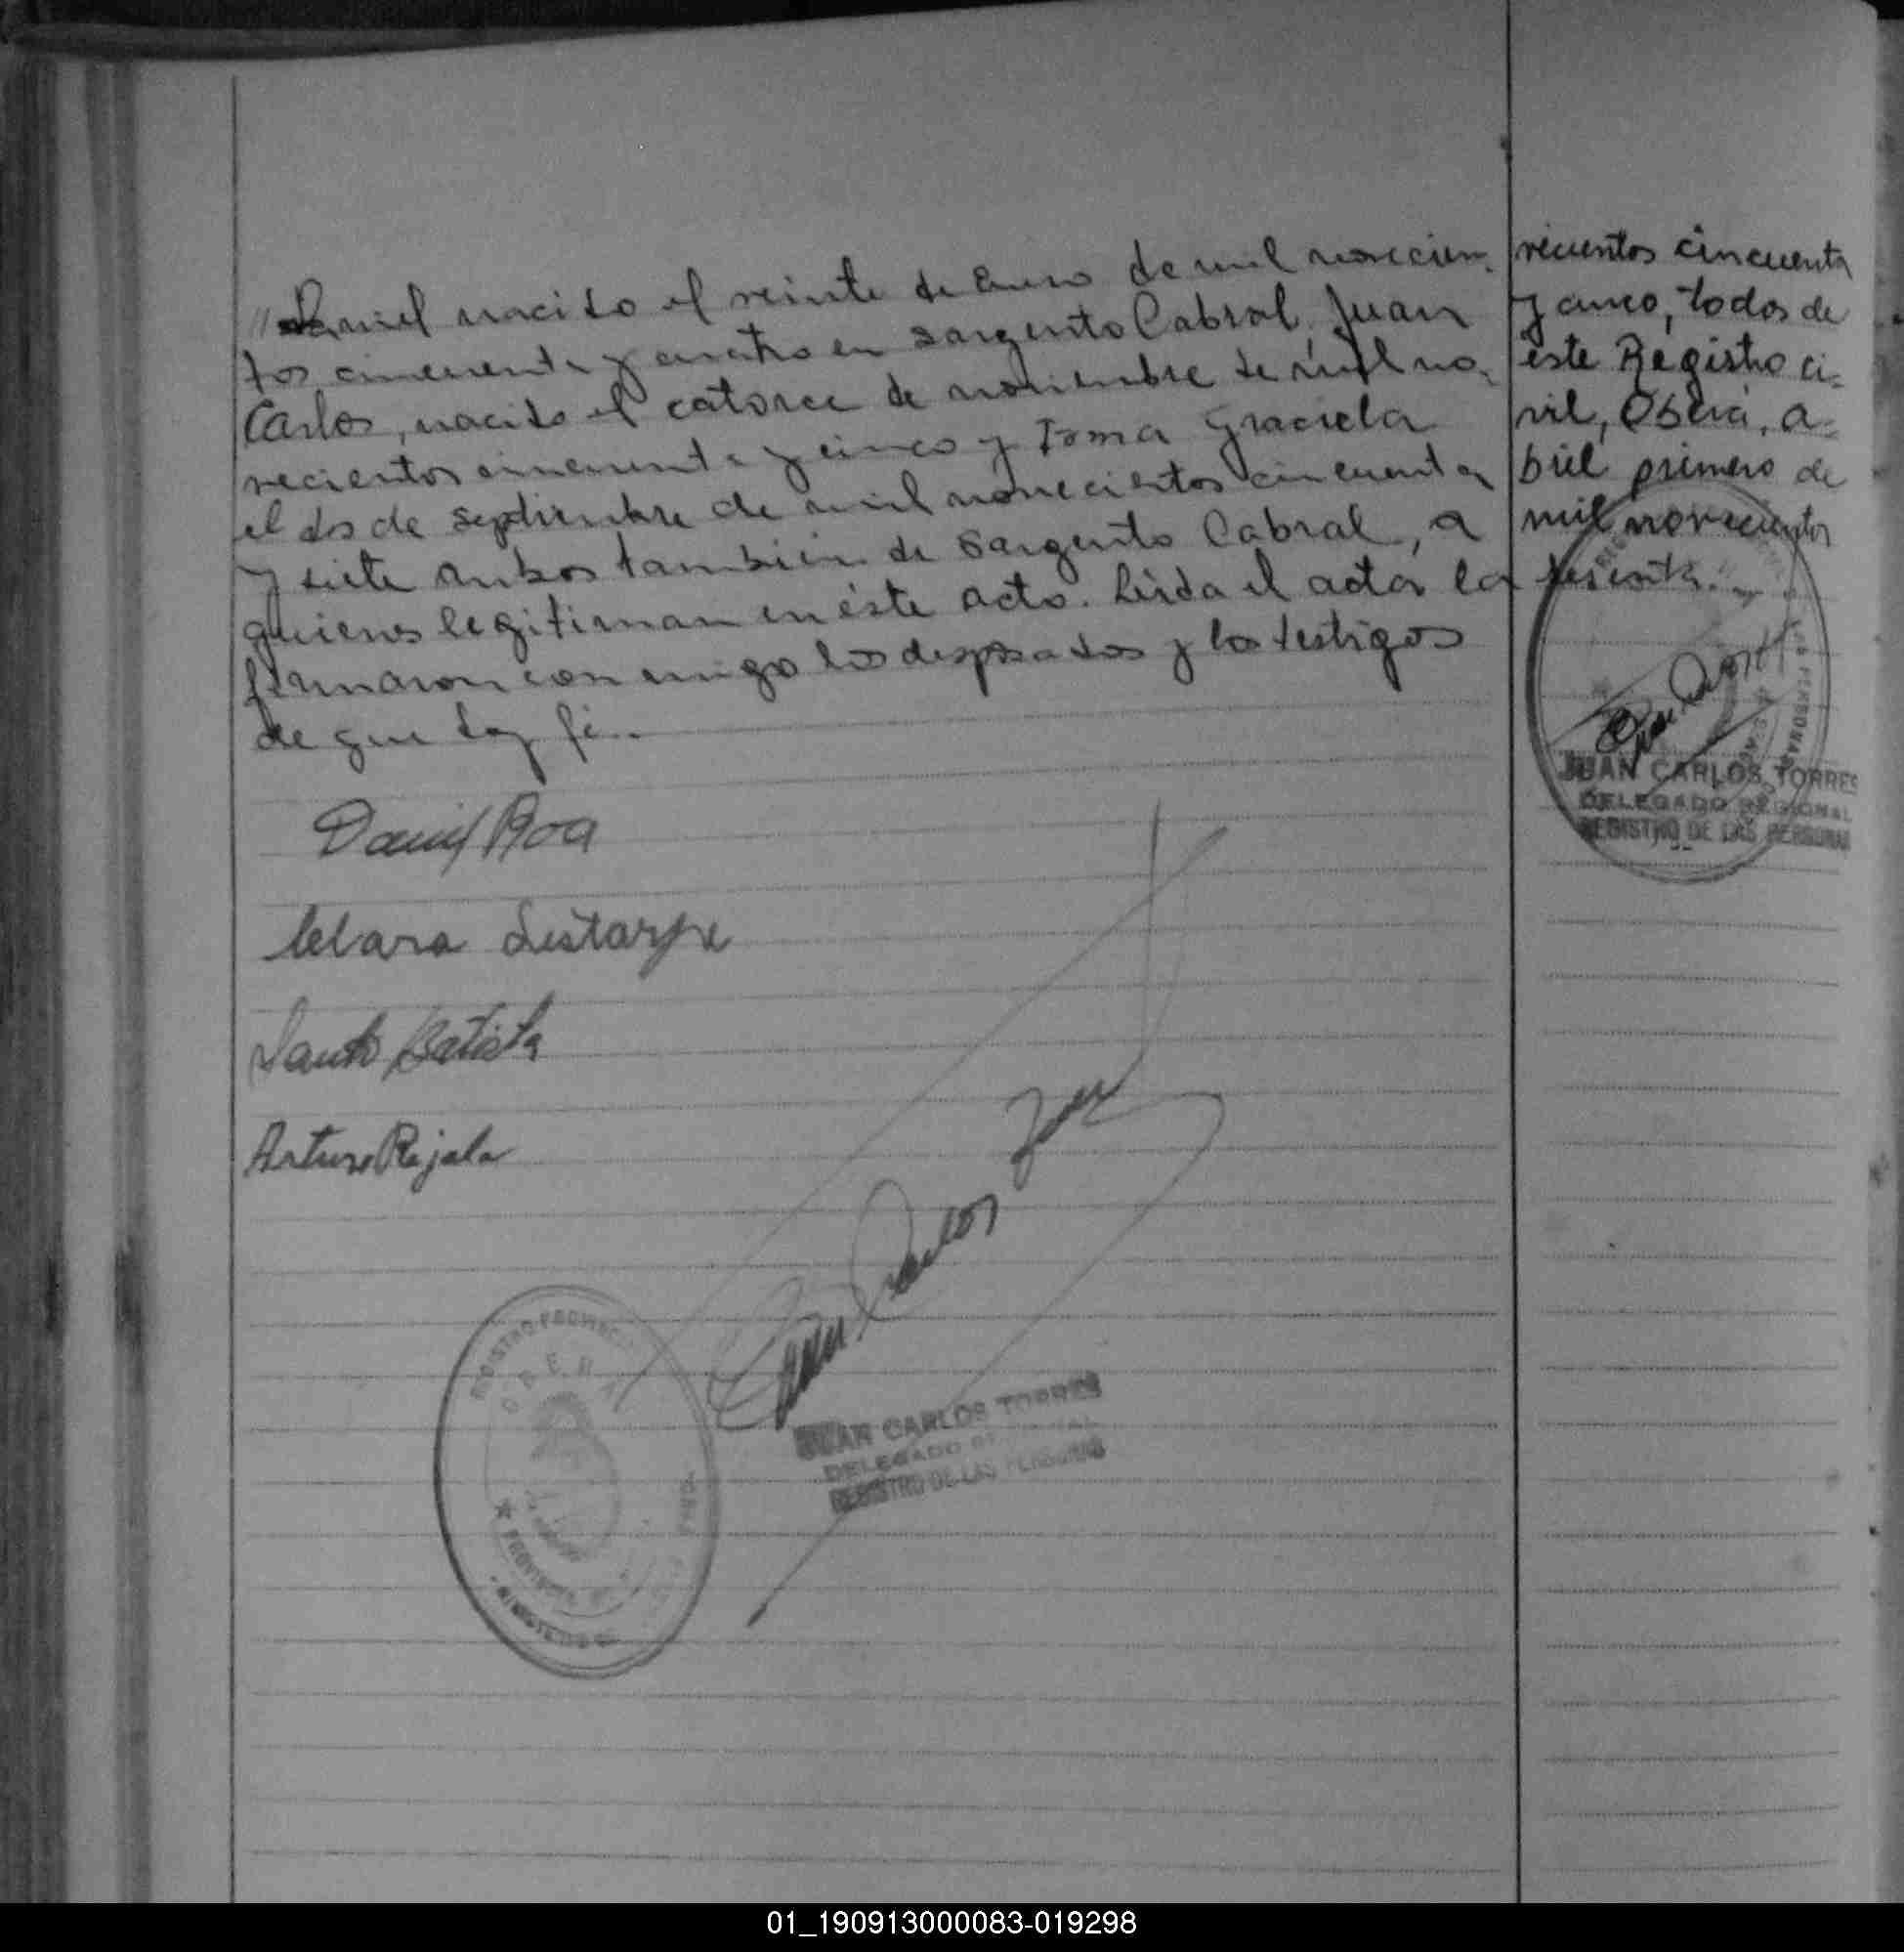 Daniel nacido el veinte de Enero de mil novecien-
tos cincuenta y cuatro en Sargento Cabral, Juan
Carlos, nacido el catorce de noviembre de mil no-
vecientos cincuenta y cinco y Graciela
el dos de septiembre de mil novecientos cincuenta
y siete ambos también de Sargento Cabral, a
quienes legitiman en éste acto. Leída el acta la
firmaron con migo los desposados y los testigos
de que doy fé.-
Daniel Roa
Clara
Santo Batista
Arturo Rajala
Juan Carlos
REGISTRO PROVINCIAL
OBERA
JUAN CARLOS TORRES
DELEGADO
REGISTRO DE LAS PERSONAS
vecientos cincuenta
y cinco, todos de
este Registro ci-
vil, Oberá, a-
bril primero de
mil novecientos
sesenta.-
JUAN CARLOS TORRES
DELEGADO REGIONAL
REGISTRO DE LAS PERSONAS
01_190913000083-019298